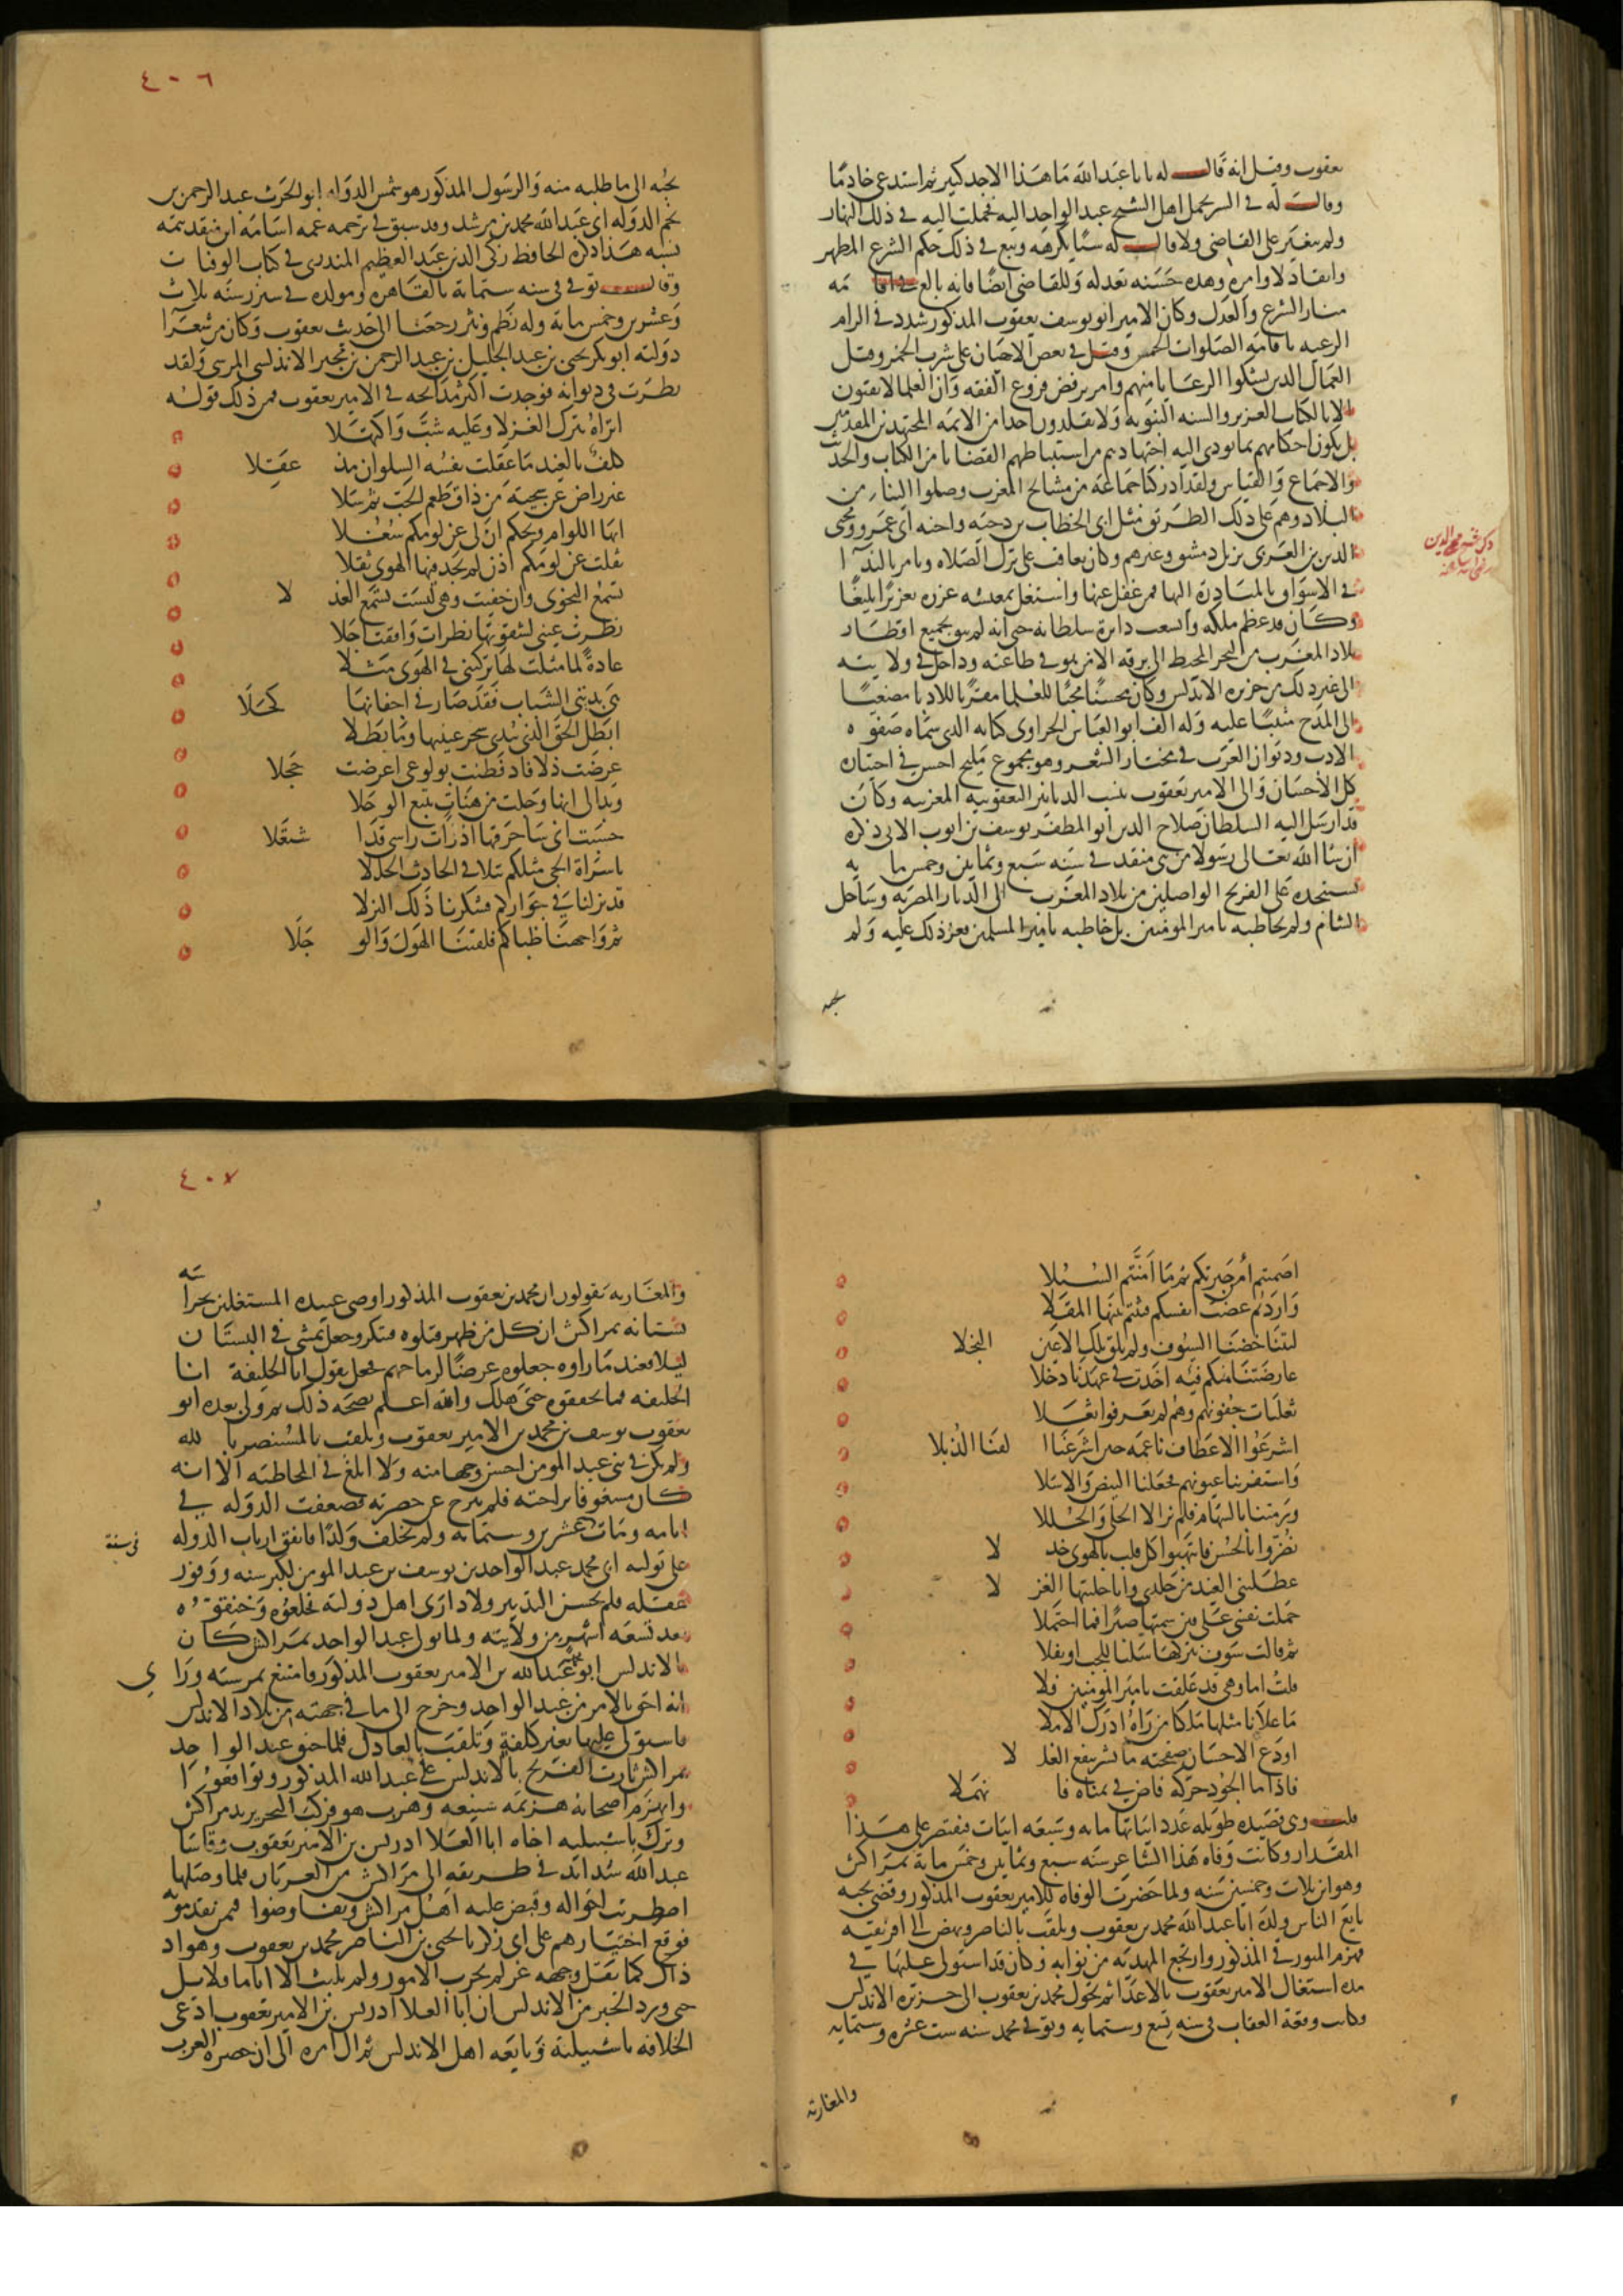 يعقوب وقيل انه قال له يا با عبد الله ما هذا الا جد كبير ثم استدعى خادما
وقال له في السر يحمل اهل الشيخ عبد الواحد اليه فحملت اليه في ذلك النهار
ولم يتغير على القاضي ولا قال له شيا يكرهه وتبع في ذلك حكم الشرع المطهر
وانقاد لاوامره وهذه حسنة تعد له وللقاضي ايضا فانه بالغ في اقامة
منار الشرع والعدل وكان الامير ابو يوسف يعقوب المذكور شدد في الزام
الرعية باقامة الصلوات الخمس وقتل في بعض الاحيان على شرب الخمر وقتل
العمال الذين يشكوا الرعايا منهم وامر برفض فروع الفقه وان العلما لا يفتون
الا بالكتاب العزيز والسنة النبوية ولا يقلدون احدا من الايمة المجتهدين المقدمين
بل يكون احكامهم بما يودي اليه اجتهادهم من استنباطهم القضايا من الكتاب والحديث
والاجماع والقياس ولقد ادركنا جماعة من مشايخ المغرب وصلوا الينا من
البلاد وهم على ذلك الطريق مثل ابي الخطاب بن دحية واخيه ابي عمرو ومحيي
الدين بن العربي نزل دمشق وغيرهم وكان يعاقب على ترك الصلاة ويامر بالندا
في الاسواق بالمبادرة اليها فمن غفل عنها واشتغل بمعيشته عزره تعزيرا بليغا
وكان قد عظم ملكه واتسعت دايرة سلطانه حتى انه لم يبق بجميع اقطار
بلاد المغرب من البحر المحيط الى برقة الا من هو في طاعته وداخل في ولايته
الى غير ذلك من جزيرة الاندلس وكان محسنا محبا للعلما مقربا للادبا مصغيا
الى المدح مثيبا عليه وله الف ابو العباس الجراوي كتابه الذي سماه صفوة
الادب وديوان العرب في مختار الشعر وهو مجموع مليح احسن في اختياره
كل الاحسان والى الامير يعقوب تنسب الدنانير اليعقوبية المغربية وكان
قد ارسل اليه السلطان صلاح الدين ابو المظفر يوسف بن ايوب الاتي ذكره
ان شا الله تعالى رسولا من بني منقذ في سنة سبع وثمانين وخمس ماية
يستنجده على الفرنج الواصلين من بلاد المغرب الى الديار المصرية وساحل
الشام ولم يخاطبه بامير المومنين بل خاطبه بامير المسلمين فعز ذلك عليه ولم
يجبه
٤٠٦
يجبه الى ما طلبه منه والرسول المذكور هو شمس الدولة ابو الحرث عبد الرحمن بن
نجم الدولة ابي عبد الله محمد بن مرشد وقد سبق في ترجمة عمه اسامة ابن منقذ تتمة
نسبه هذا ذكره الحافظ زكي الدين عبد العظيم المنذري في كتاب الوفيات
وقال توفي في سنة ستماية بالقاهرة ومولده في شيزر سنة ثلاث
وعشرين وخمس ماية وله نظم ونثر رجعنا الى حديث يعقوب وكان من شعرا
دولته ابو بكر يحيى بن عبد الجليل بن عبد الرحمن بن مجبر الاندلسي المرسي ولقد
نظرت في ديوانه فوجدت اكثر مدايحه في الامير يعقوب فمن ذلك قوله
اتراه يترك الغزلا وعليه شب واكتهلا
كلف بالغيد ما عقلت نفسه السلوان مذ عقلا
غير راض عن سجية من ذاق طعم الحب ثم سلا
ايها اللوام ويحكم ان لي عن لومكم شغلا
ثقلت عن لومكم اذن لم يجد فيها الهوى ثقلا
تسمع النجوى وان خفيت وهي ليست تسمع العذ لا
نظرت عيني لشقوتها نظرات وافقت اجلا
غادة لما مثلت لها تركتني في الهوى مثلا
هي بزتني الشباب فقد صار في اجفانها كحلا
ابطل الحق الذي بيدي سحر عينيها وما بطلا
عرضت دلا فاذ فطنت بولوعي اعرضت خجلا
وبدا لي انها وجلت من هنات تبع الوجلا
حسبت اني ساحرقها اذ رات راسي قد ا شتعلا
يا سراة الحي مثلكم يتلافى الحادث الجللا
قد نزلنا في جواركم فشكرنا ذلك النزلا
ثم واجهنا ظباكم فلقينا الهول والو جلا
اضمنتم امن جيرتكم ثم ما امنتم السبلا
واردتم غضب انفسكم فبثتم بينها المقلا
ليتنا خضنا السيوف ولم نلق تلك الاعين النجلا
عارضتنا منكم فية اخذت في عهدنا دخلا
ثعلبات جفونهم وهم لم يعرفوا ثعلا
اشرعوا الاعطاف ناعمة حين اشرعنا ا لقنا الذبلا
واستفزتنا عيونهم فخلعنا البيض والاسلا
ورمتنا بالسهام فلم نر الا الحلي والحللا
نصروا بالحسن فانتهبوا كل قلب بالهوى خذ لا
عطلتني الغيد من جلدي وانا حليتها الغز لا
حملت نفسي على فتن سمتها صبرا فما احتملا
ثم قالت سوف نتركها سلبا للحب او نفلا
قلت اما وهي قد علقت بامير المومنين فلا
ما علانا مثلها ملكا من راه ادرك الاملا
اودع الاحسان صفحته ما بشر ينفع الغل لا
فاذا ما الجود حركه فاض في يمناه فا نهملا
قلت وهي قصيدة طويلة عدد ابياتها ماية وسبعة ابيات فنقتصر على هذا
المقدار وكانت وفاة هذا الشاعر سنة سبع وثمانين وخمس ماية بمراكش
وهو ابن ثلاث وخمسين سنة ولما حضرت الوفاة للامير يعقوب المذكور وقضى نحبه
بايع الناس ولده ابا عبد الله محمد بن يعقوب وتلقب بالناصر ونهض الى افريقية
فهزم الميورقي المذكور وارتجع المهدية من نوابه وكان قد استولى عليها في
مدة اشتغال الامير يعقوب بالاعدا ثم تحول محمد بن يعقوب الى جزيرة الاندلس
وكانت وقعة العقاب في سنة تسع وستماية وتوفي محمد سنة ست عشره وستماية
والمغاربة
٤٠٧
والمغاربة يقولون ان محمد بن يعقوب المذكور اوصى عبيده المستغلين بحراسة
بستانه بمراكش ان كل من ظهر قتلوه فتنكر وجعل يمشي في البستان
ليلا فعند ما راوه جعلوه غرضا لرماحهم فجعل يقول انا الخليفة انا
الخليفة فما تحققوه حتى هلك والله اعلم بصحة ذلك ثم ولي بعده ابو
يعقوب يوسف بن محمد بن الامير يعقوب وتلقب بالمستنصر بالله
ولم يكن في بني عبد المومن احسن وجها منه ولا ابلغ في المخاطبة الا انه
كان مشغوفا براحته فلم يبرح عن حضرته فضعفت الدولة في
ايامه ومات عشرين وستماية ولم يخلف ولدا فاتفق ارباب الدولة
في سنة
على تولية ابي محمد عبد الواحد بن يوسف بن عبد المومن لكبر سنه ووفور
عقله فلم يحسن التدبير ولا دارى اهل دولته فخلعوه وخنقوه
بعد تسعة اشهر من ولايته ولما تولى عبد الواحد بمراكش كان
بالاندلس ابو محمد عبد الله بن الامير يعقوب المذكور فامتنع بمرسية وراى
انه احق بالامر من عبد الواحد وخرج الى ما في جهته من بلاد الاندلس
فاستولى عليها بغير كلفة وتلقب بالعادل فلما خنق عبد الواحد
بمراكش ثارت الفرنج بالاندلس على عبد الله المذكور وتواقعوا
وانهزم اصحابه هزيمة شنيعة وهرب هو فركب البحر يريد مراكش
وترك باشبيلية اخاه ابا العلا ادريس بن الامير يعقوب وقاسا
عبد الله شدايد في طريقه الى مراكش من العربان فلما وصلها
اضطربت احواله وقبض عليه اهل مراكش وتفاوضوا فمن يقدمونه
فوقع اختيارهم على ابي زكريا يحيى بن الناصر محمد بن يعقوب وهو اذ
ذاك كما بقل وجهه غر لم يجرب الامور ولم يلبث الا اياما قلايل
حتى ورد الخبر من الاندلس ان ابا العلا ادريس بن الامير يعقوب ادعى
الخلافة باشبيلية وبايعه اهل الاندلس ثم ال امره الى ان حصره العرب